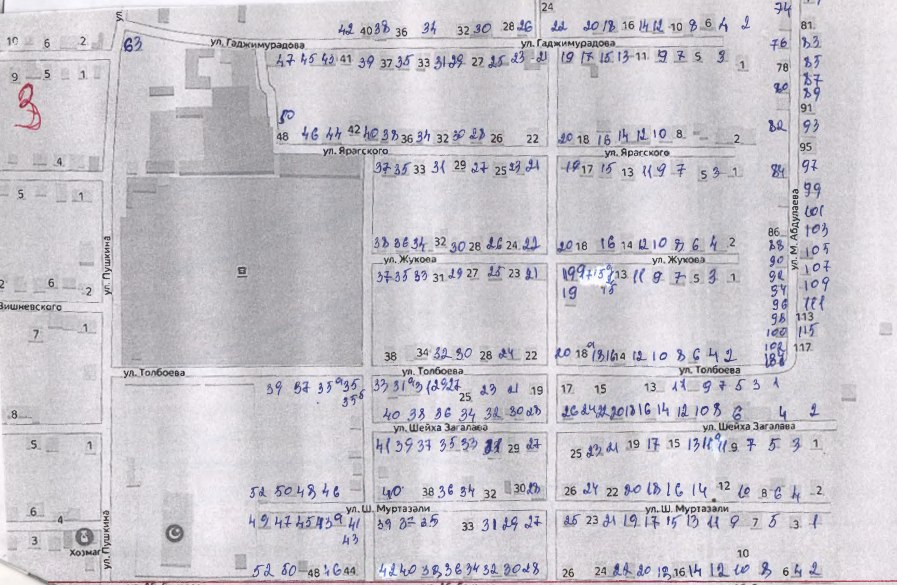 24
74
42 40 38 36 34 32 30 28 26 22 20 18 16 14 12 10 8 6 4 2
81
10 6 2 63 ул. Гаджимурадова ул. Гаджимурадова 76 83
47 45 43 41 39 37 35 33 31 29 27 25 23 21 19 17 15 13 11 9 7 5 3 1 78 85
9 5 1
80 87
89
3
91
50
48 46 44 42 40 38 36 34 32 30 28 26 22 20 18 16 14 12 10 8 2 82 93
ул. Ярагского ул. Ярагского 95
4
37 35 33 31 29 27 25 23 21 19 17 15 13 11 9 7 5 3 1 84 97
5 1 99
101
ул. Пушкина
ул. М. Абдулаева
86 103
38 36 34 32 30 28 26 24 22 20 18 16 14 12 10 8 6 4 2 88 105
ул. Жукова ул. Жукова 90 107
37 35 33 31 29 27 25 23 21 19 17 15 13 11 9 7 5 3 1 92 109
2 6 2 19 15 94
Вишневского 96 111
98 113
7 1 100 115
38 34 32 30 28 24 22 20 18 18а 16 14 12 10 8 6 4 2 102 117
ул. Толбоева ул. Толбоева ул. Толбоева
39 37 35а 35 33 31а 31 29 27 25 23 21 19 17 15 13 11 9 7 5 3 1
35б
8 40 38 36 34 32 30 28 26 24 22 20 18 16 14 12 10 8 6 4 2
ул. Шейха Загалава ул. Шейха Загалава
5 1 41 39 37 35 33 31 29 27 25 23 21 19 17 15 13 11а 11 9 7 5 3 1
52 50 48 46 40 38 36 34 32 30 28 26 24 22 20 18 16 14 12 10 8 6 4 2
6 4 ул. Ш. Муртазали ул. Ш. Муртазали
49 47 45 43а 41 39 37 35 33 31 29 27 25 23 21 19 17 15 13 11 9 7 5 3 1
3 43
Хозмаг ул. Пушкина
10
52 50 48 46 44 42 40 38 36 34 32 30 28 26 24 22 20 18 16 14 12 10 8 6 4 2